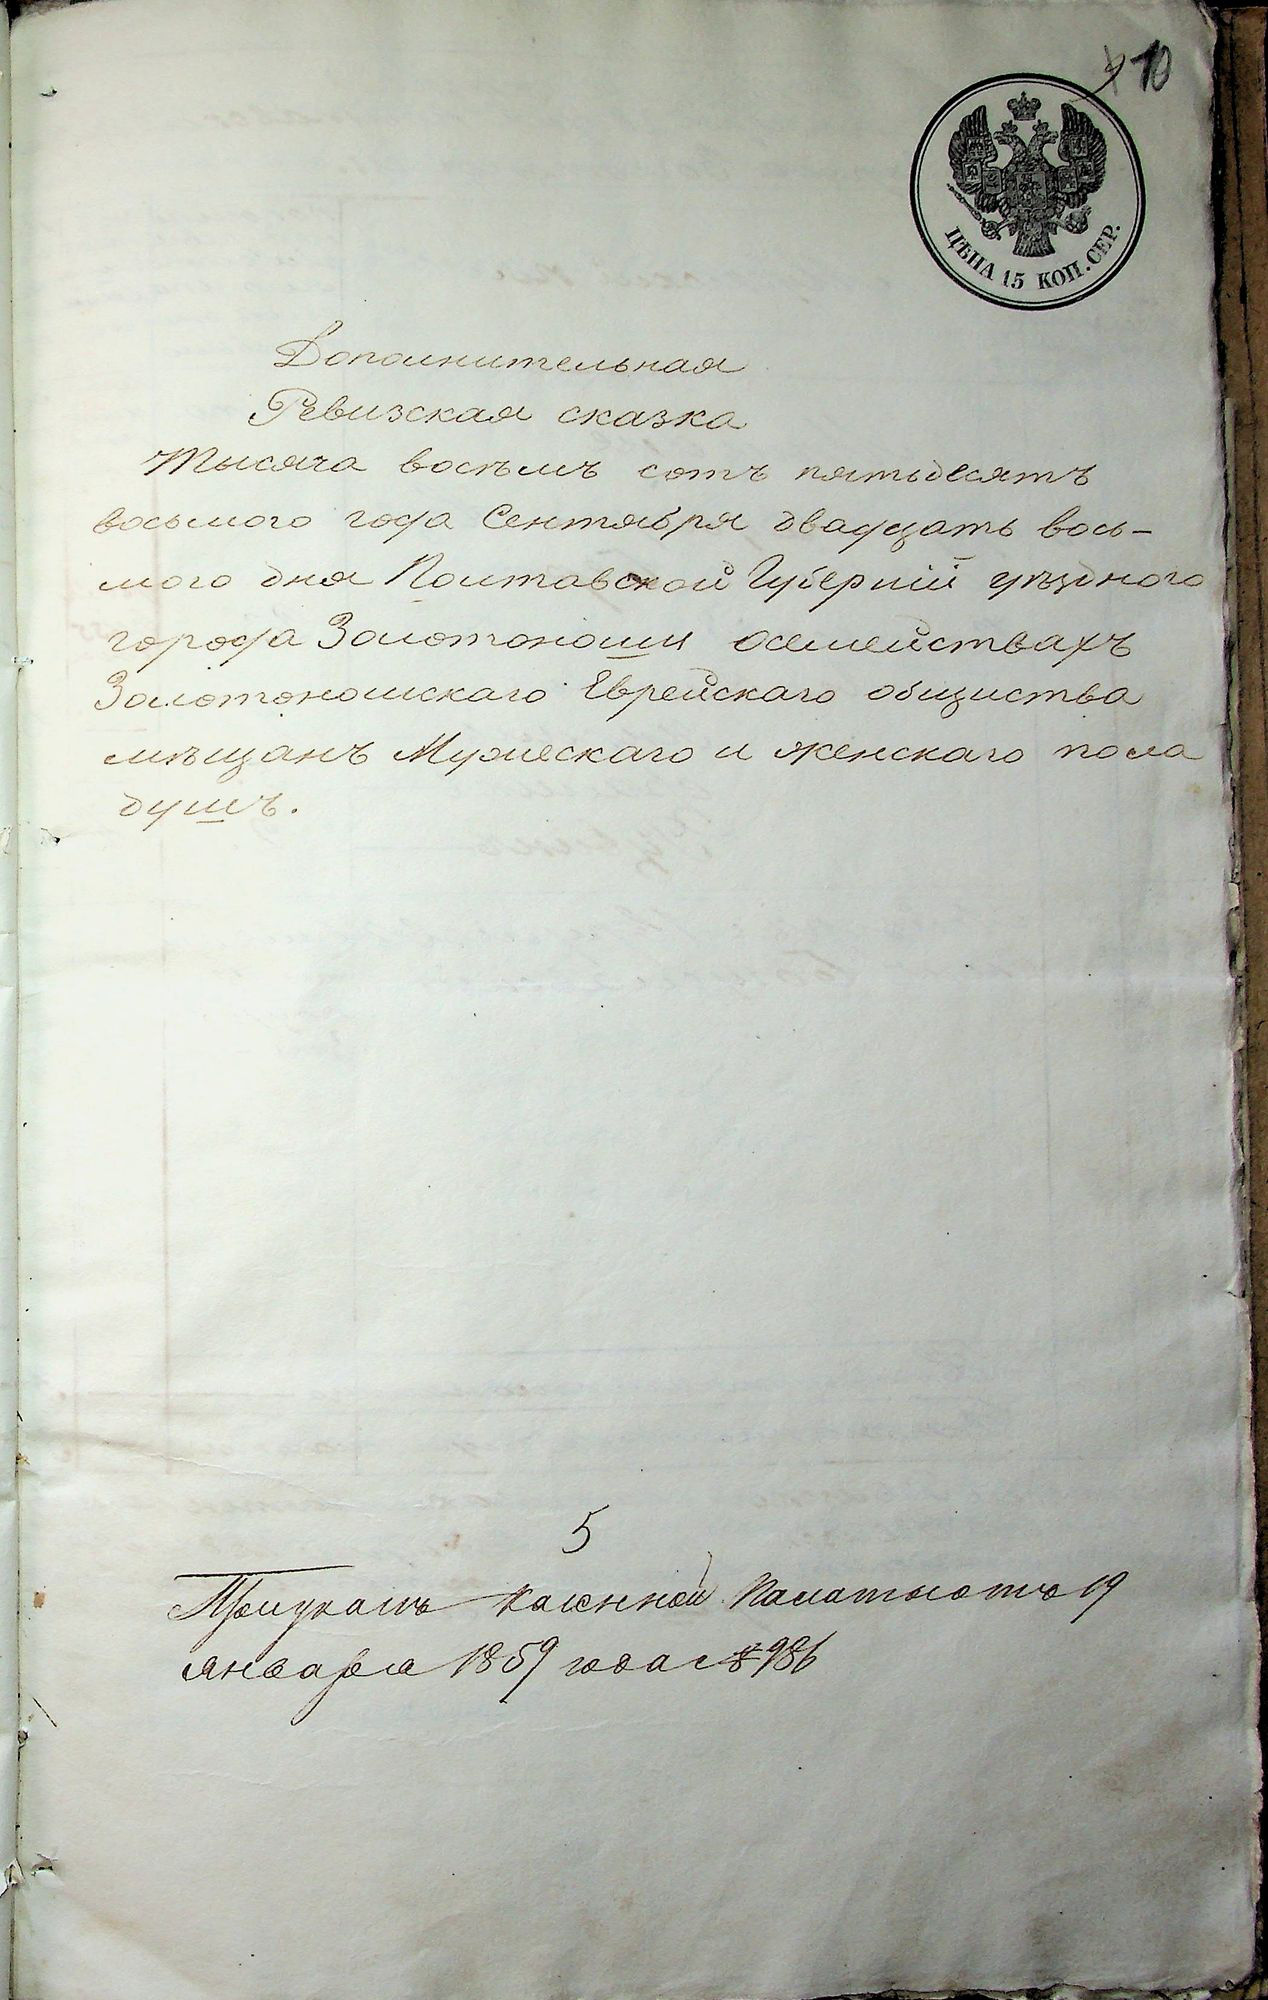 10
ЦѢНА 15 КОП. СЕР.
Дополнительная
Ревизская сказка
Тысяча восѣмъ сотъ пятьдесятъ
восьмого года Сентября двадцать вось-
мого дня Полтавской Губерніи уѣздного
города Золотоноши осемействахъ
Золотоношскаго Еврейскаго общиства
мѣщанъ Мужескаго и женскаго пола
душъ.
5
При указѣ Казенной Палаты отъ 19
января 1859 года № 986